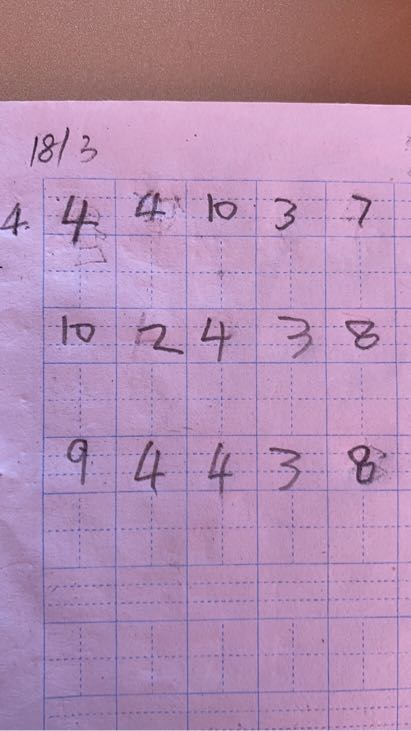 18/3
4. 4 4 10 3 7
10 2 4 3 8
9 4 4 3 8